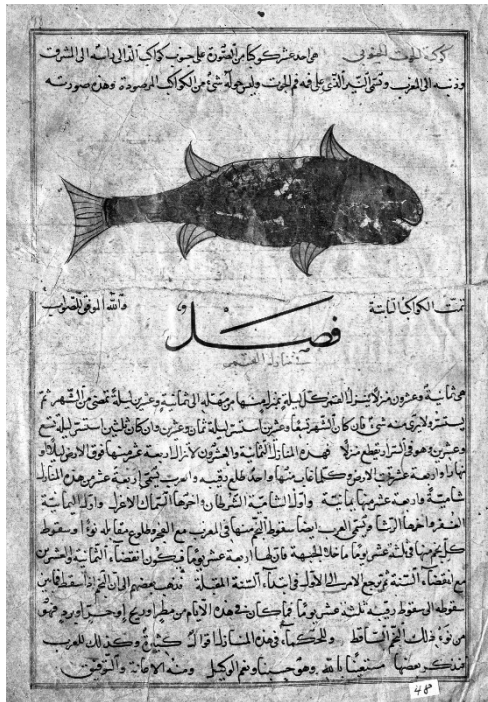 كوكبة الحوت الجنوبي هي احد عشر كوكبا من الصورة على جنوب كواكب الدالي راسه الى المشرق
وذنبه الى المغرب وتسمى النير الذي على فمه فم الحوت وليس حوله شئ من الكواكب المرصودة وهذه صورته
تمت الكواكب الثابتة والله الموفق للصواب
فصل
في منازل القمر
هي ثمانية وعشرون منزلا ينزل القمر كل ليلة بمنزل منها من مهله الى ثمانية وعشرين ليلة تمضي من الشهر ثم
يستتر ولا يرى منه شئ فان كان الشهر تسعا وعشرين استتر ليلة ثمان وعشرين وان كان ثلثين استتر ليلة تسع
وعشرين وهو في السرار يقطع منزلا فهذه المنازل الثمانية والعشرون لا يزال اربعة عشر منها فوق الارض ليلا و
نهارا واربعة عشر تحت الارض وكلما غاب منها واحد طلع رقيبه والعرب تسمى اربعة عشر من هذه المنازل
شامية واربعة عشر منها يمانية واول الشامية الشرطان واخرها السماك الاعزل واول اليمانية
الغفر واخرها الرشا وتسمى العرب ايضا سقوط النجم منها في المغرب مع الفجر وطلوع مقابله نوءا وسقوط
كل نجم منها في ثلثة عشر يوما ما خلا الجبهة فان لها اربعة عشر يوما فيكون انقضاء الثمانية والعشرين
مع انقضاء السنة ثم ترجع الامر الى الاول في ابتداء السنة المقبلة فذهب بعضهم الى ان النجم اذا سقط فما بين
سقوطه الى سقوط رقيبه ثلثة عشر يوما فما كان في هذه الايام من مطر او ريح او حر او برد فهو
من نوء ذلك النجم الساقط وللحكماء في هذه المنازل اقوال كثيرة وكذلك للعرب
فنذكر بعضها مستعينا بالله وهو حسبنا ونعم الوكيل ومنه الاعانة والتوفيق
48